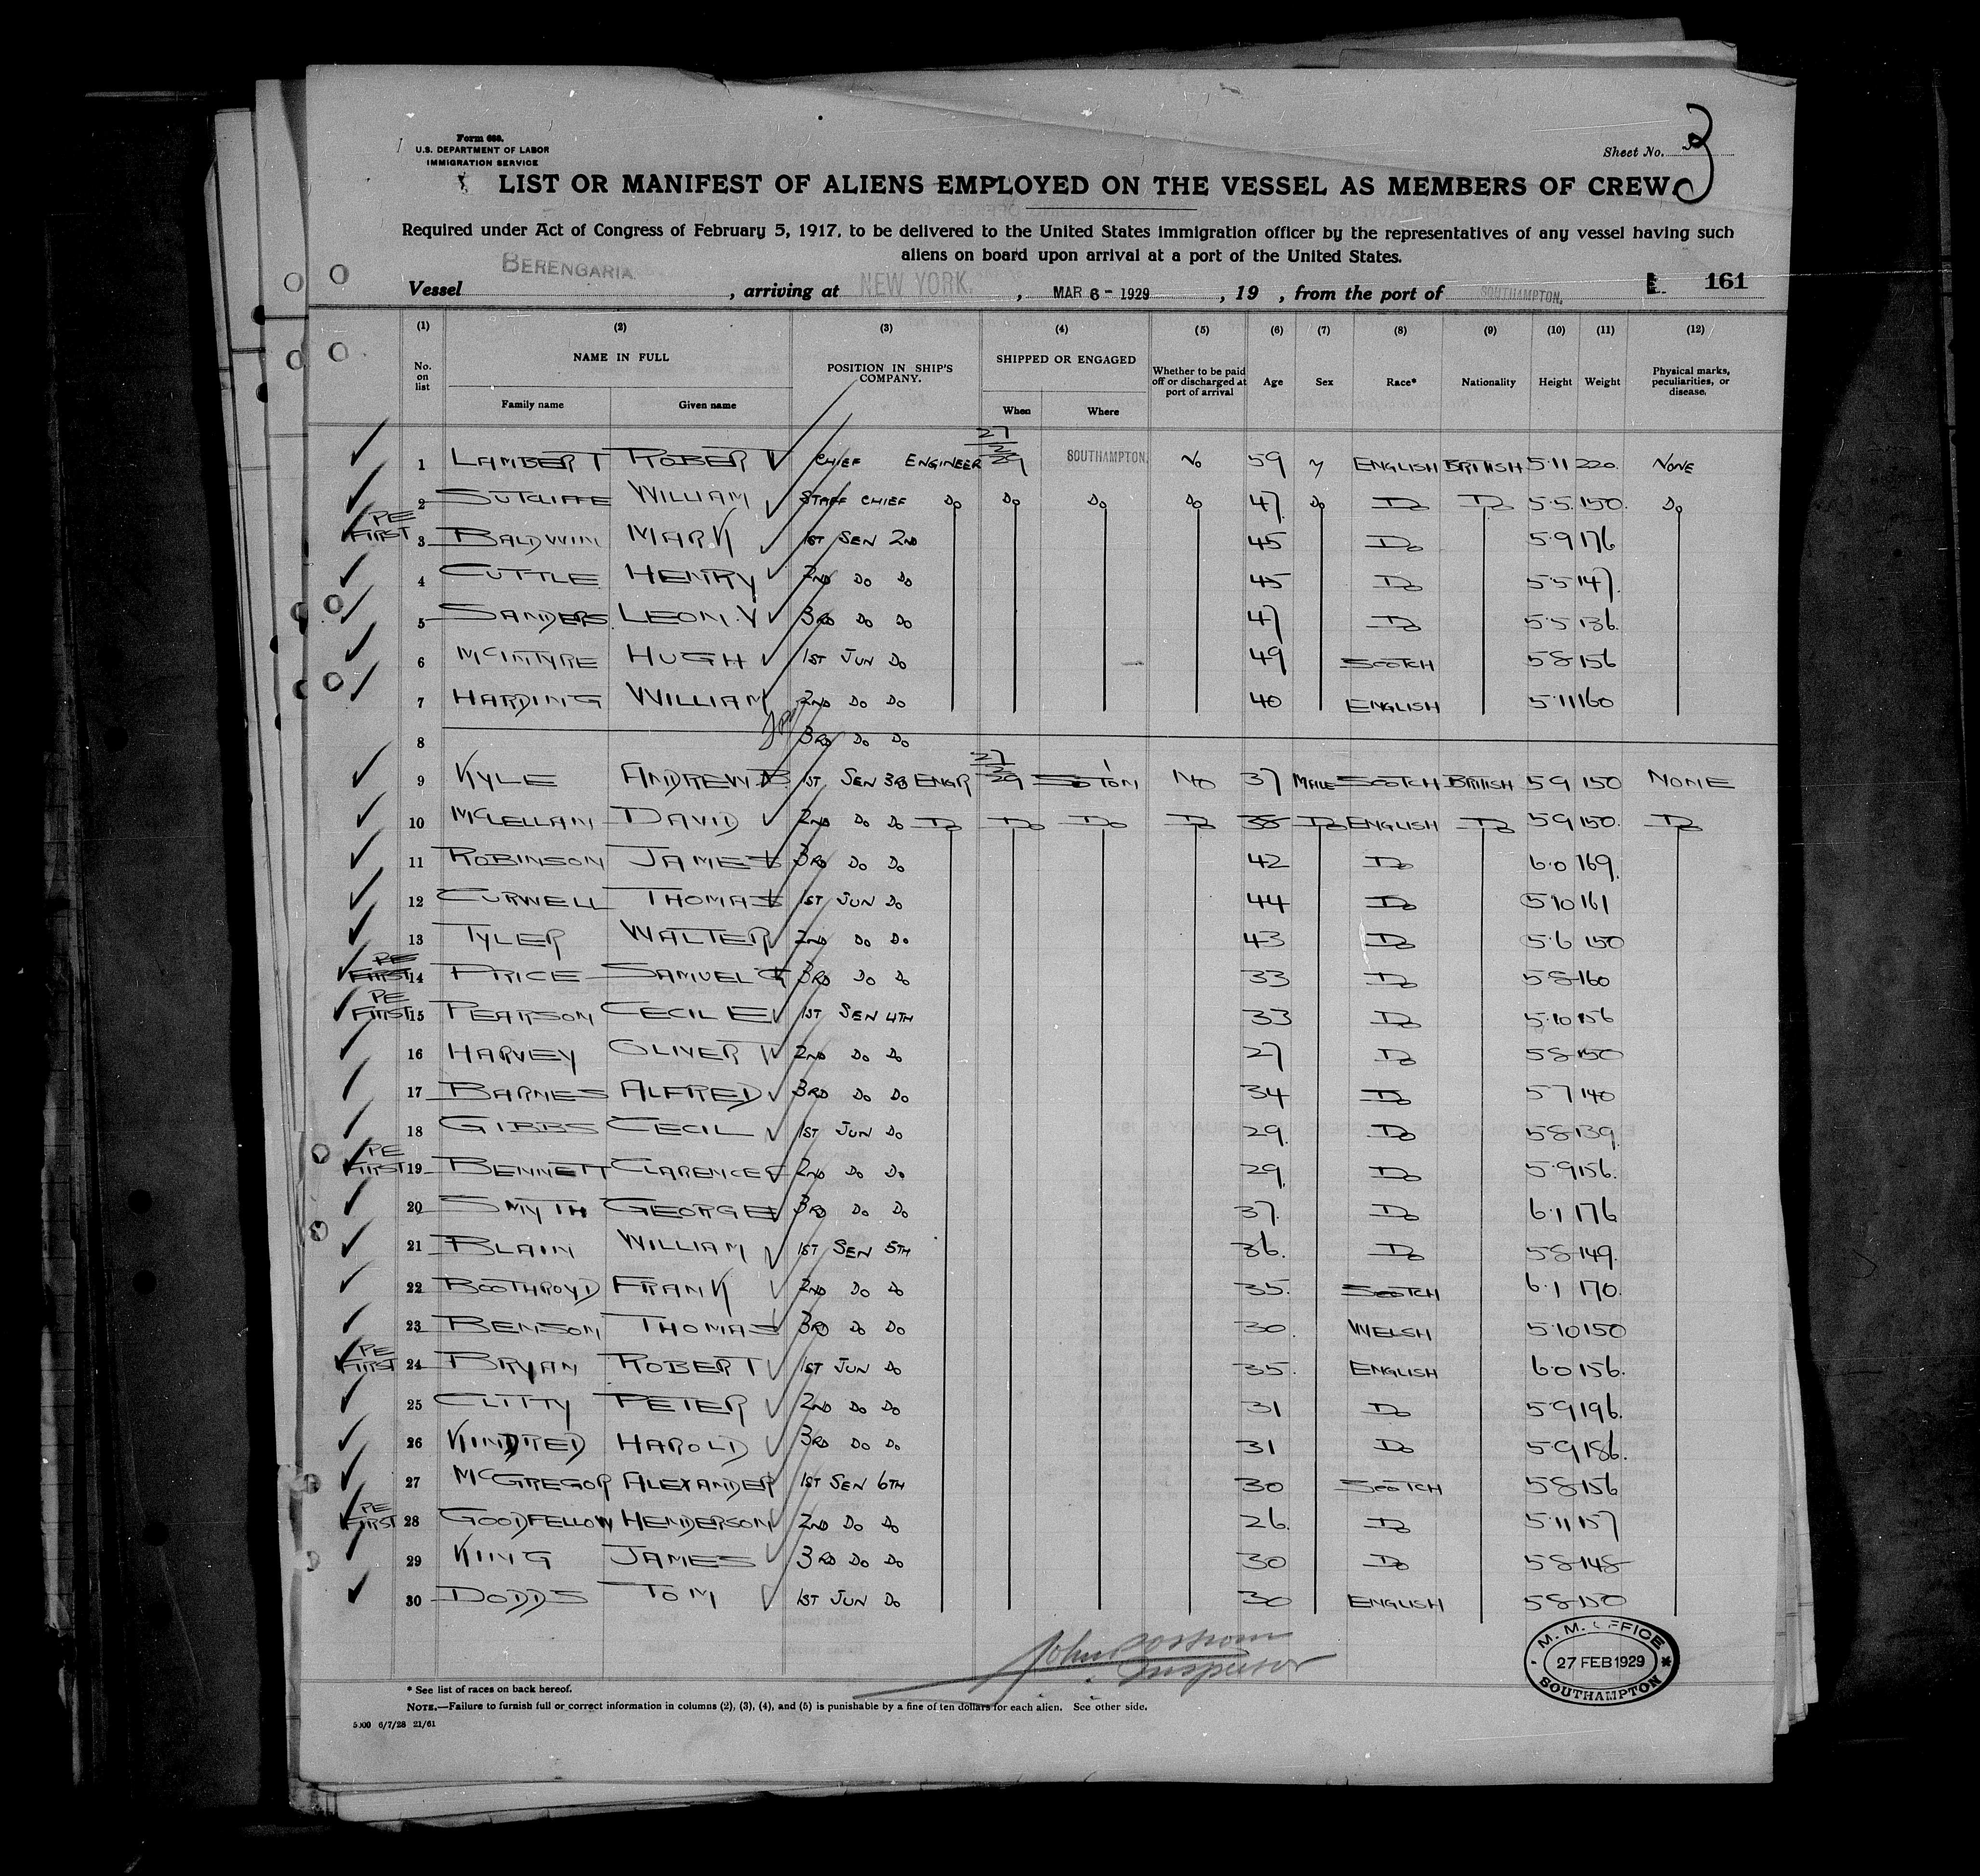 Form 689.
U.S. DEPARTMENT OF LABOR
IMMIGRATION SERVICE
Sheet No. 3
LIST OR MANIFEST OF ALIENS EMPLOYED ON THE VESSEL AS MEMBERS OF CREW
Required under Act of Congress of February 5, 1917, to be delivered to the United States immigration officer by the representatives of any vessel having such
aliens on board upon arrival at a port of the United States.
161
Vessel BERENGARIA, arriving at NEW YORK., MAR 6 - 1929, 19 , from the port of SOUTHAMPTON,
(1) (2) (3) (4) (5) (6) (7) (8) (9) (10) (11) (12)
No. on list NAME IN FULL Family name Given name POSITION IN SHIP'S COMPANY. SHIPPED OR ENGAGED When Where Whether to be paid off or discharged at port of arrival Age Sex Race* Nationality Height Weight Physical marks, peculiarities, or disease.
1 LAMBERT ROBERT CHIEF ENGINEER 27/2/29 SOUTHAMPTON. No 59 M ENGLISH BRITISH 5·11 220. NONE
2 SUTCLIFFE WILLIAM STAFF CHIEF DO DO DO DO 47. DO DO DO 5·5. 150. DO
PE FIRST 3 BALDWIN MARK 1ST SEN 2ND 45 DO 5·9 176
4 CUTTLE HENRY 2ND DO DO 45 DO 5·5 147.
5 SANDERS LEON.V 3RD DO DO 47 DO 5·5 136.
6 MCINTYRE HUGH 1ST JUN DO 49 SCOTCH 5·8 156
7 HARDING WILLIAM 2ND DO DO 40 ENGLISH 5·11 160
8 3RD DO DO
9 KYLE ANDREW B 1ST SEN 3RD ENGR 27/2/29 SO'TON NO 37 MALE SCOTCH BRITISH 5·9 150 NONE
10 MCLELLAN DAVID 2ND DO DO DO DO DO DO 38 DO ENGLISH DO 5·9 150. DO
11 ROBINSON JAMES 3RD DO DO 42 DO 6·0 169.
12 CURWELL THOMAS 1ST JUN DO 44 DO 5·10 161
13 TYLER WALTER 2ND DO DO 43 DO 5·6 150
PE FIRST 14 PRICE SAMUEL G 3RD DO DO 33 DO 5·8 160
PE FIRST 15 PEARSON CECIL E 1ST SEN 4TH 33 DO 5·10 156
16 HARVEY OLIVER 2ND DO DO 27 DO 5·8 150
17 BARNES ALFRED 3RD DO DO 34 DO 5·7 140
18 GIBBS CECIL 1ST JUN DO 29. DO 5·8 139.
PE FIRST 19 BENNETT CLARENCE F 2ND DO DO 29. DO 5·9 156.
20 SMYTH GEORGE 3RD DO DO 37. DO 6·1 176
21 BLAIN WILLIAM 1ST SEN 5TH 36. DO 5·8 149.
22 BOOTHROYD FRANK 2ND DO DO 35. SCOTCH 6·1 170.
23 BENSON THOMAS 3RD DO DO 30. WELSH 5·10 150
PE FIRST 24 BRYAN ROBERT 1ST JUN DO 35. ENGLISH 6·0 156.
25 CLITTY PETER 2ND DO DO 31 DO 5·9 196.
26 KINDRED HAROLD 3RD DO DO 31 DO 5·9 186.
27 MCGREGOR ALEXANDER 1ST SEN 6TH 30 SCOTCH 5·8 156
PE FIRST 28 GOODFELLOW HENDERSON 2ND DO DO 26. DO 5·11 157
29 KING JAMES 3RD DO DO 30 DO 5·8 148
30 DODDS TOM 1ST JUN DO 30 ENGLISH 5·8 150
John
Inspector
M. M. OFFICE
27 FEB 1929
SOUTHAMPTON
* See list of races on back hereof.
NOTE.—Failure to furnish full or correct information in columns (2), (3), (4), and (5) is punishable by a fine of ten dollars for each alien. See other side.
5000 6/7/28 21/61